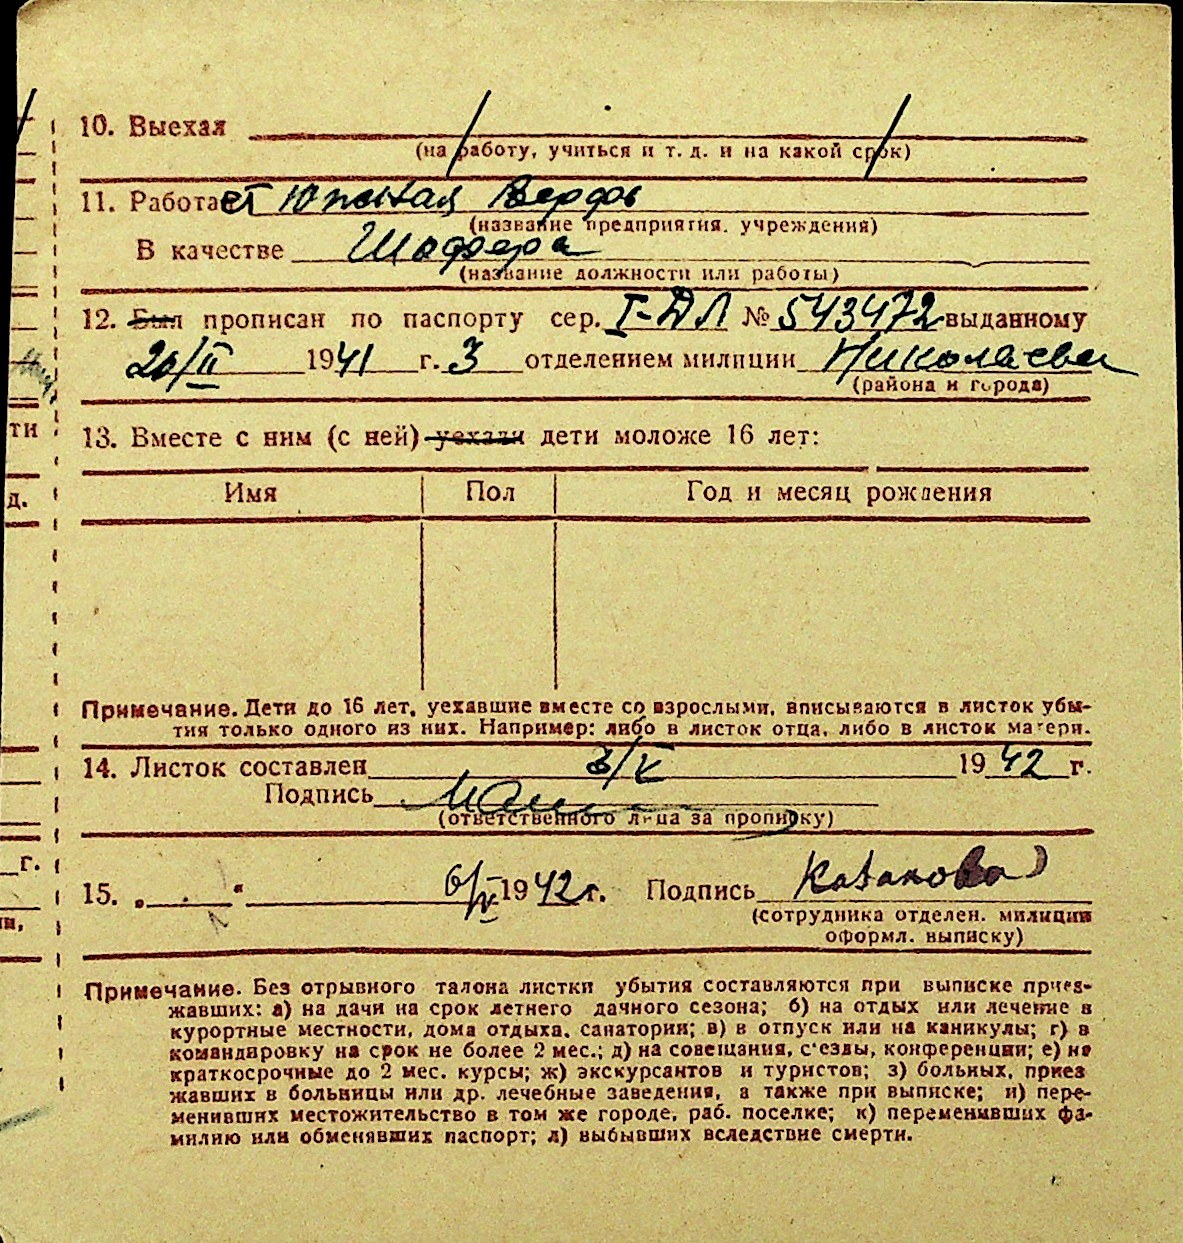 10. Выехал
(на работу, учиться и т. д. и на какой срок)
11. Работает Южная Верфь
(название предприятия, учреждения)
В качестве Шофера
(название должности или работы)
12. Был прописан по паспорту сер. I-ДЛ № 543472 выданному
20/II 1941 г. 3 отделением милиции Николаева
(района и города)
13. Вместе с ним (с ней) уехали дети моложе 16 лет:
Имя Пол Год и месяц рождения
Примечание. Дети до 16 лет, уехавшие вместе со взрослыми, вписываются в листок убы-
тия только одного из них. Например: либо в листок отца, либо в листок матери.
14. Листок составлен 3/V 1942 г.
Подпись
(ответственного лица за прописку)
15. „ . “ 6/V 1942 г. Подпись Казакова
(сотрудника отделен. милиции
оформл. выписку)
Примечание. Без отрывного талона листки убытия составляются при выписке приез-
жавших: а) на дачи на срок летнего дачного сезона; б) на отдых или лечение в
курортные местности, дома отдыха, санатории; в) в отпуск или на каникулы; г) в
командировку на срок не более 2 мес.; д) на совещания, с'езды, конференции; е) на
краткосрочные до 2 мес. курсы; ж) экскурсантов и туристов; з) больных, приез
жавших в больницы или др. лечебные заведения, а также при выписке; и) пере-
менивших местожительство в том же городе, раб. поселке; к) переменивших фа-
милию или обменявших паспорт; л) выбывших вследствие смерти.